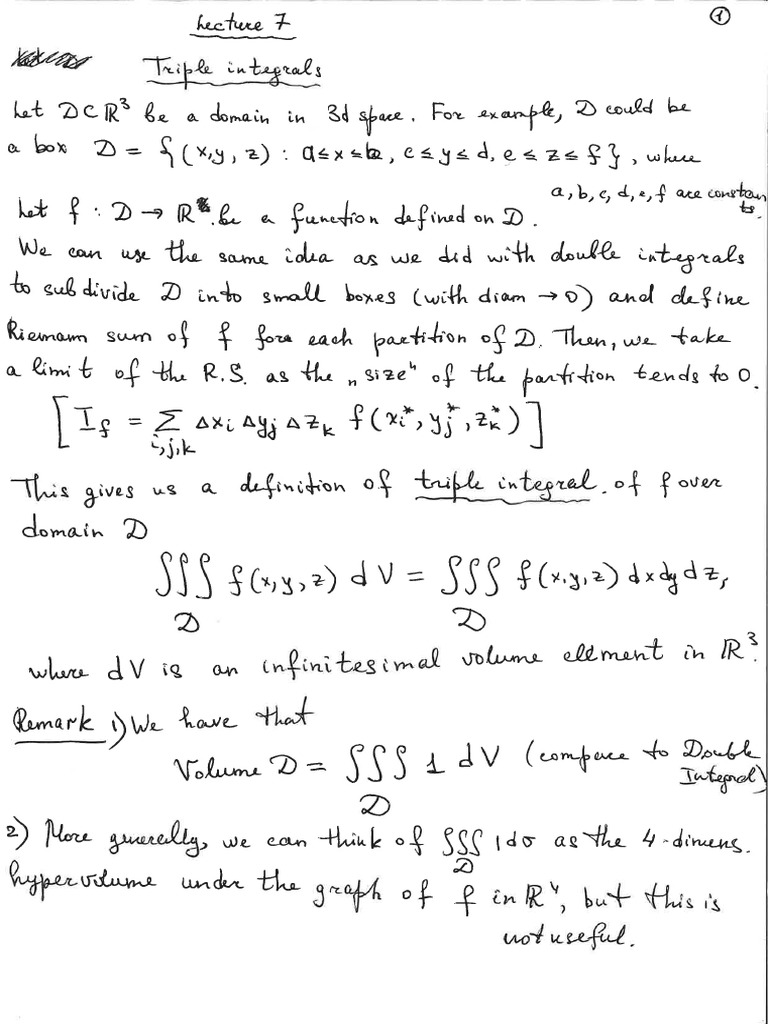 Lecture 7
①
Triple integrals
Let D⊂ℝ³ be a domain in 3d space. For example, D could be
a box D = {(x,y,z) : a≤x≤b, c≤y≤d, e≤z≤f}, where
a, b, c, d, e, f are constants.
Let f : D → ℝ be a function defined on D.
We can use the same idea as we did with double integrals
to subdivide D into small boxes (with diam → 0) and define
Riemann sum of f for each partition of D. Then, we take
a limit of the R.S. as the "size" of the partition tends to 0.
[ I_f = Σ_{i,j,k} Δx_i Δy_j Δz_k f(x_i*, y_j*, z_k*) ]
This gives us a definition of triple integral of f over
domain D
∭_D f(x,y,z) dV = ∭_D f(x,y,z) dx dy dz,
where dV is an infinitesimal volume element in ℝ³.
Remark 1) We have that
Volume D = ∭_D 1 dV (compare to Double
Integral)
2) More generally, we can think of ∭_D 1 dσ as the 4-dimens.
hypervolume under the graph of f in ℝ⁴, but this is
not useful.